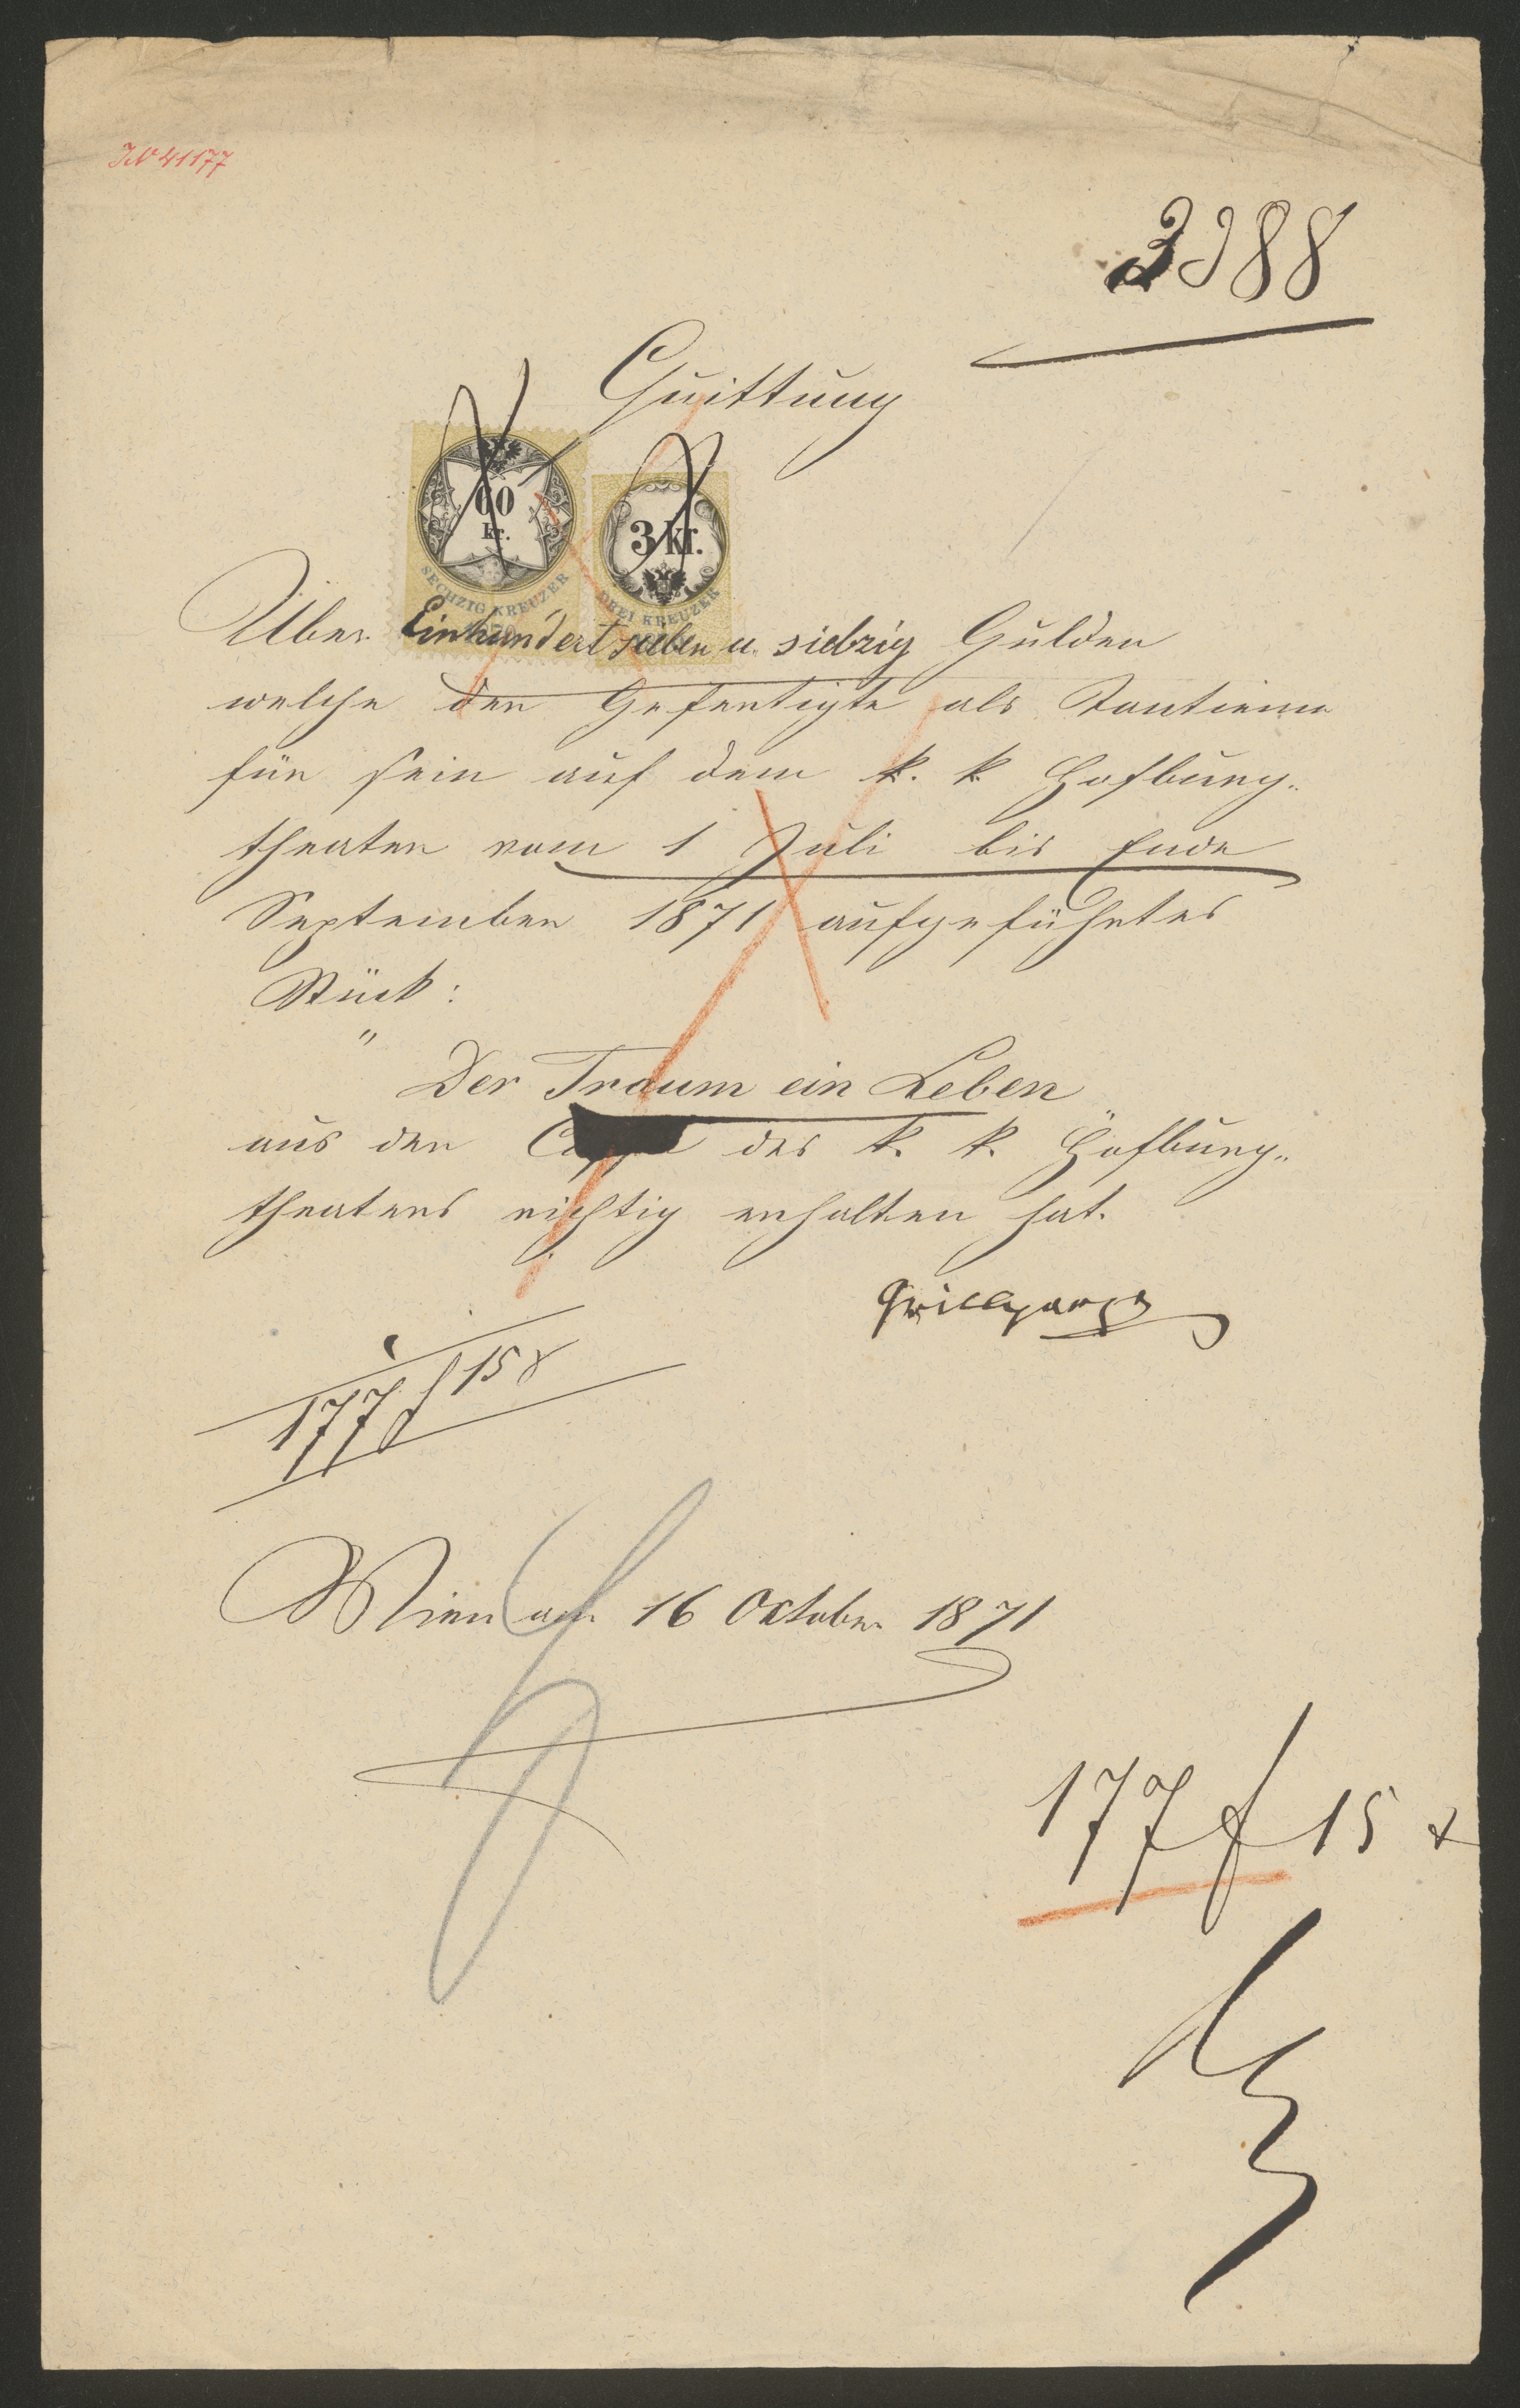 IN 41177
3988
Quittung
60
kr.
SECHZIG KREUZER
3 kr.
DREI KREUZER
Über Einhundert sieben u. siebzig Gulden
welche der Gefertigte als Tantieme
für sein auf dem k. k. Hofburg„
theater vom 1 Juli bis Ende
September 1871 aufgeführtes
Stück:
"
Der Traum ein Leben
aus der Cassa des k. k. Hofburg„
theaters richtig erhalten hat.
Grillparzer
177 f 15 x
Wien am 16 October 1871
177 f 15 x